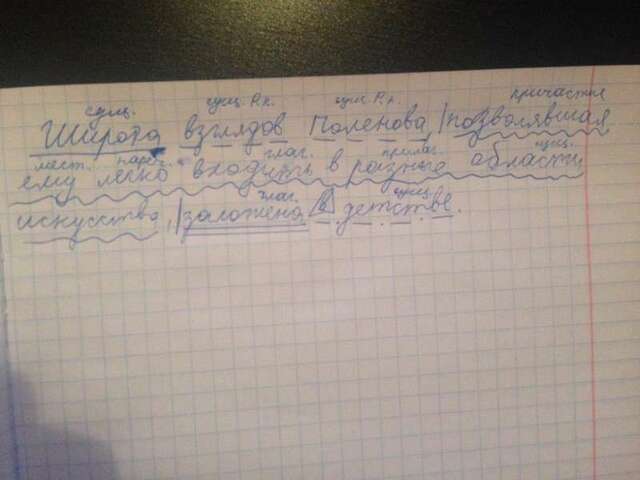 сущ. сущ. Р.п. сущ. Р.п. причастие
Широта взглядов Поленова, позволявшая
мест. нареч. глаг. прилаг. сущ.
ему легко входить в разные области
глаг. сущ.
искусства, заложена в детстве.